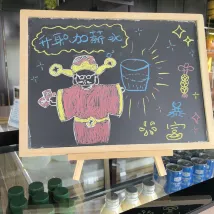 升职加薪
暴
富